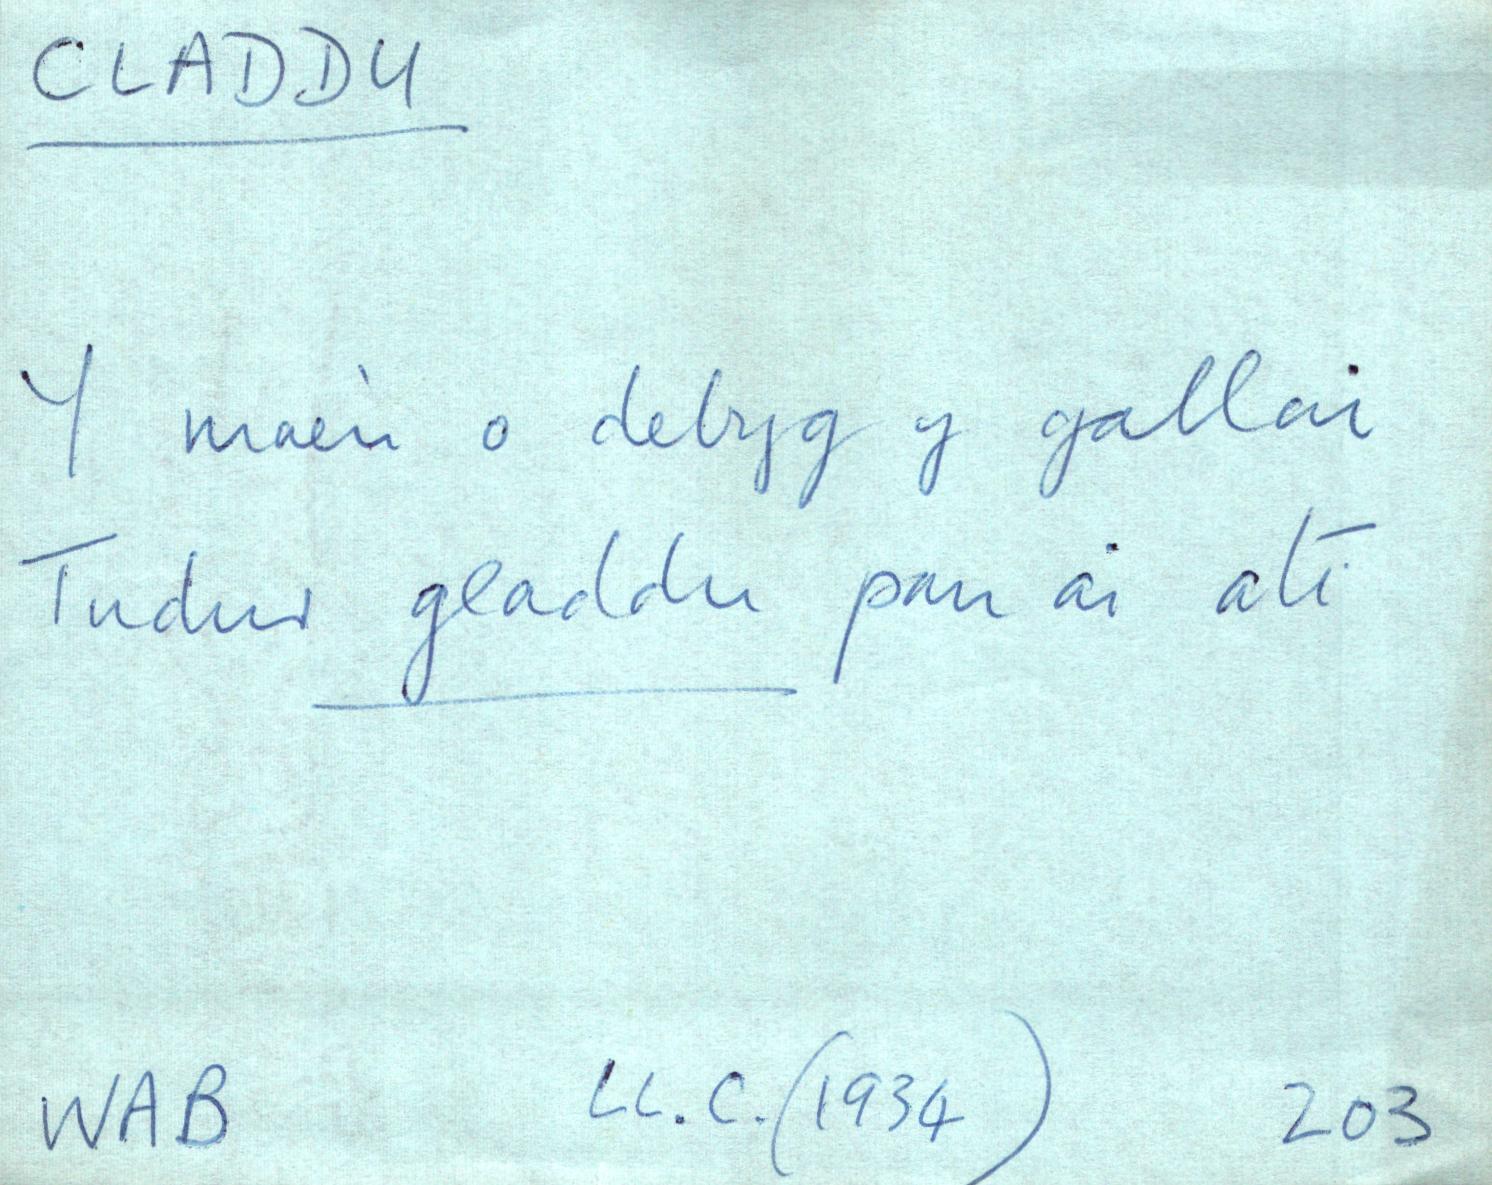 CLADDU
Y mae'n o debyg y gallai
Tudur gladdu pan âi ati
WAB LL.C. (1934) 203